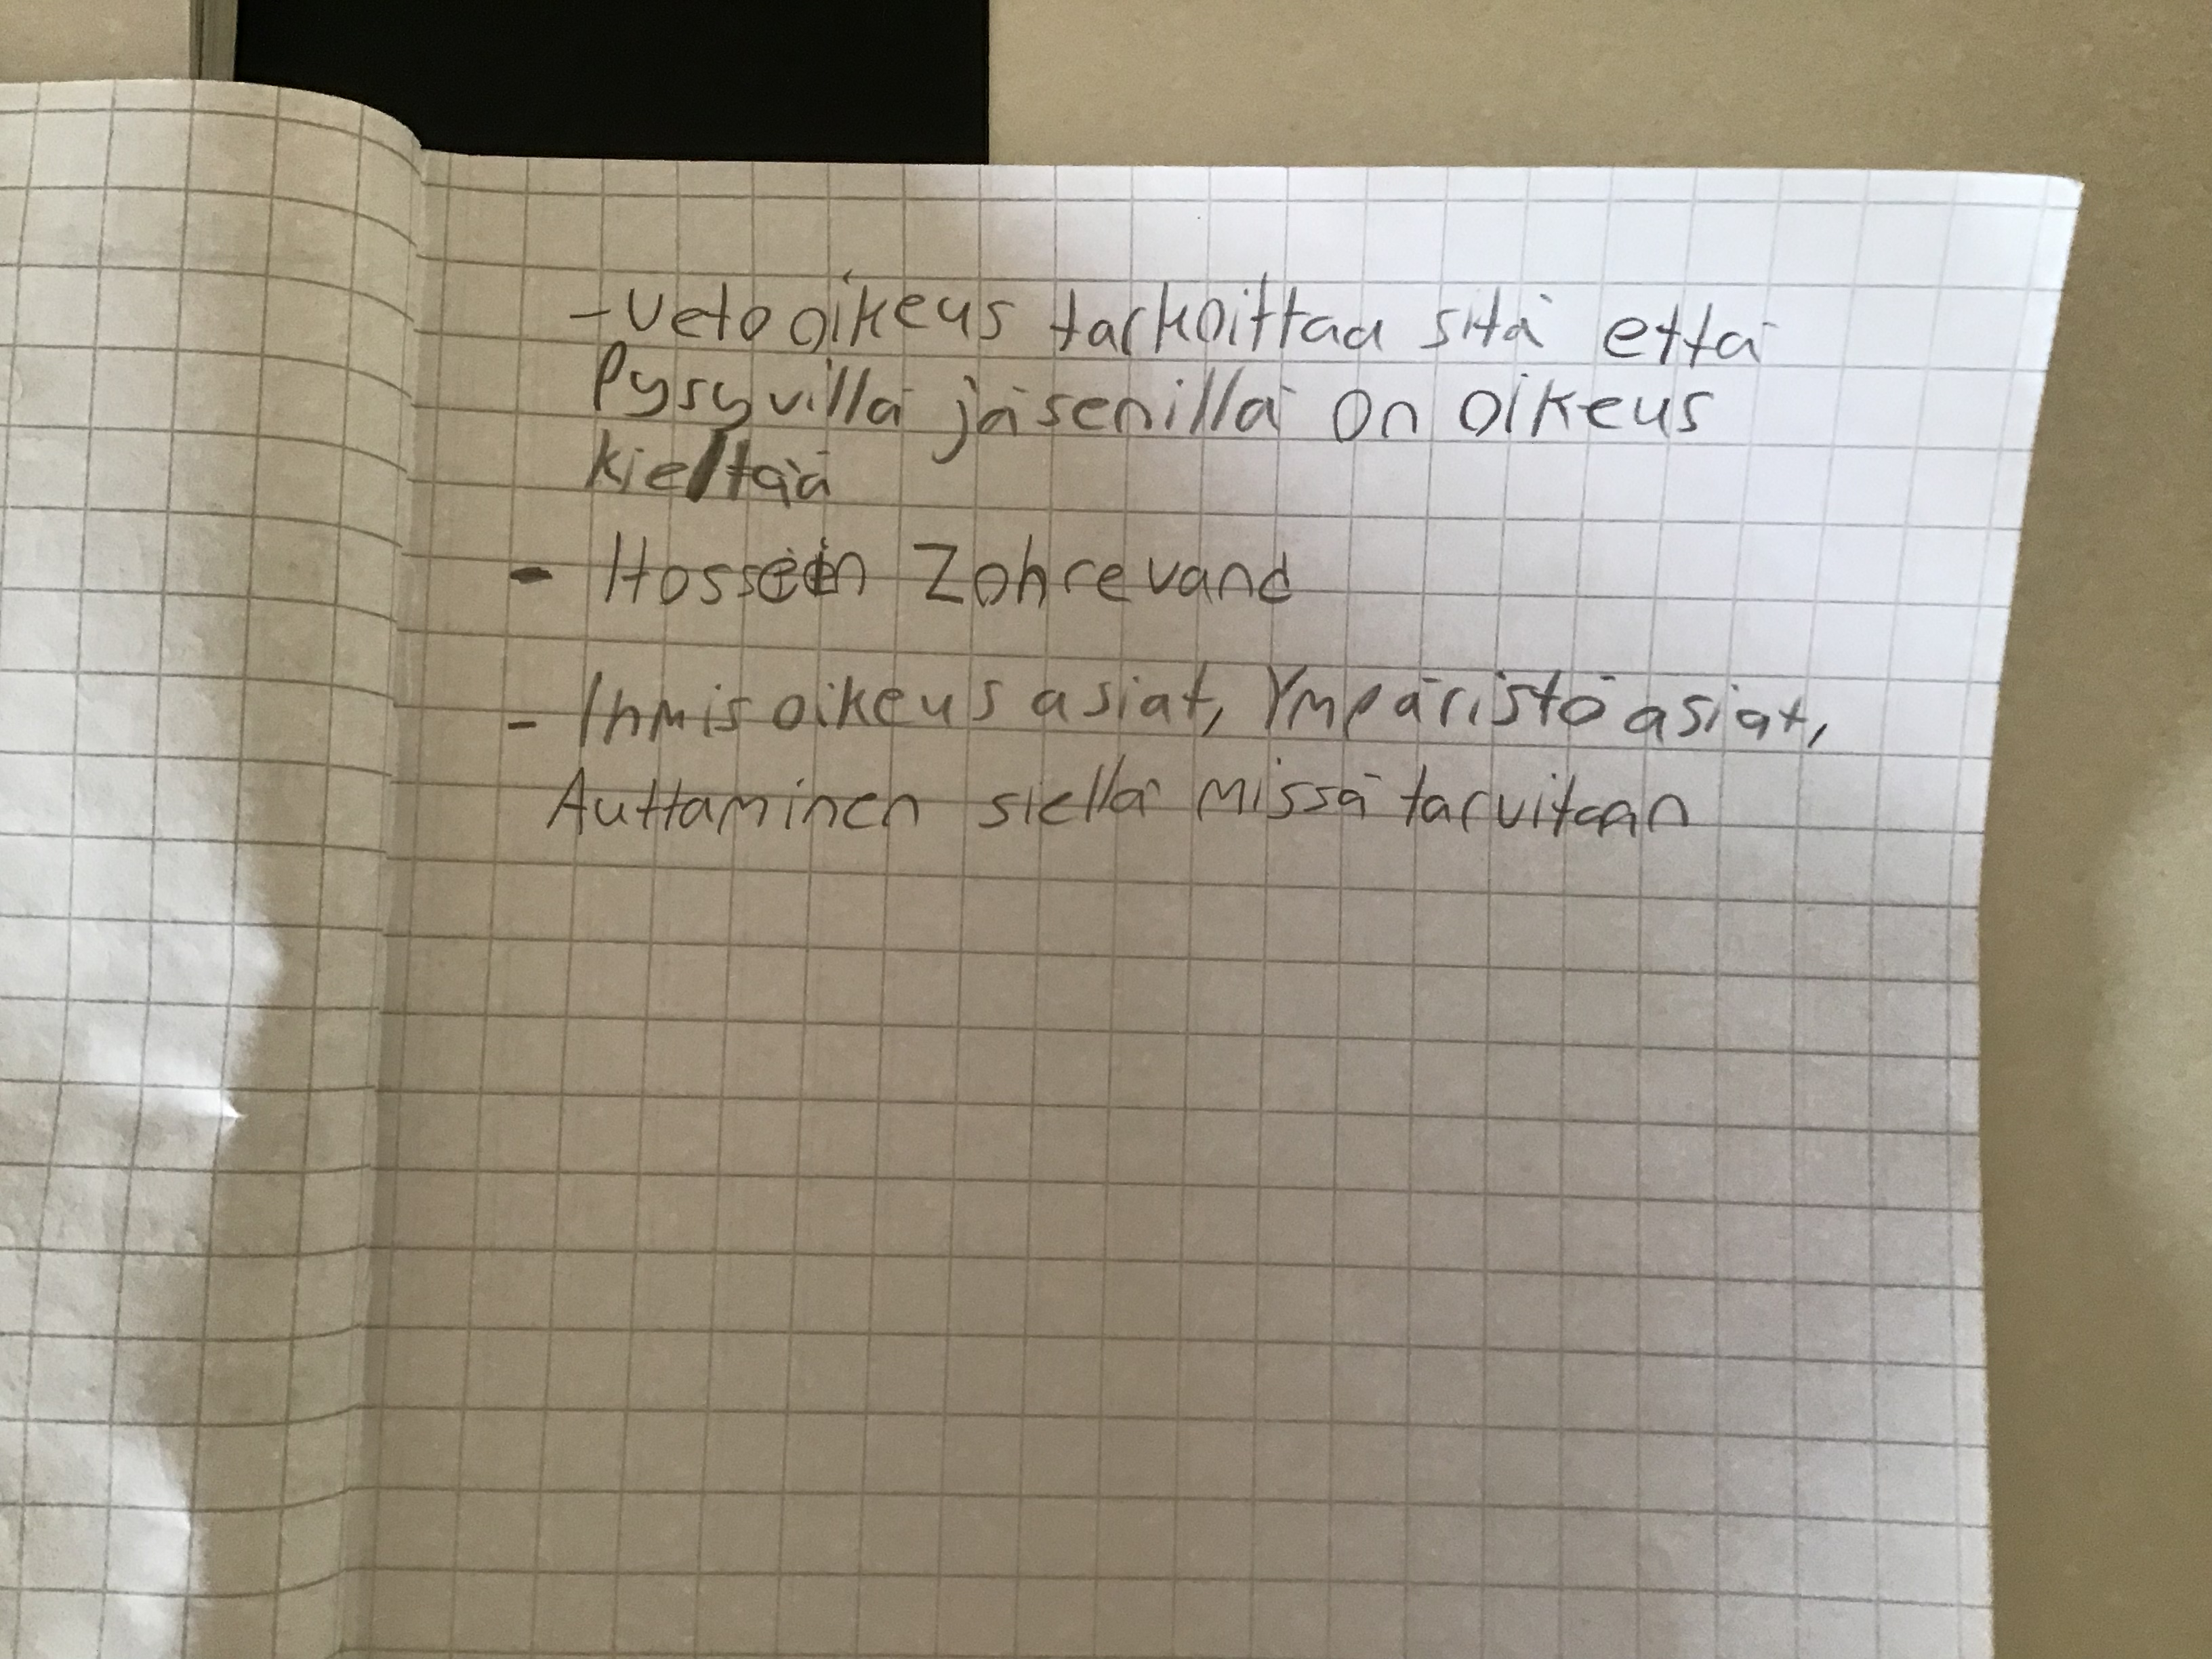 - Veto oikeus tarkoittaa sitä että
Pysyvillä jäsenillä on oikeus
kieltää
- Hossein Zohrevand
- Ihmisoikeus asiat, Ympäristö asiat,
Auttaminen siellä missä tarvitaan